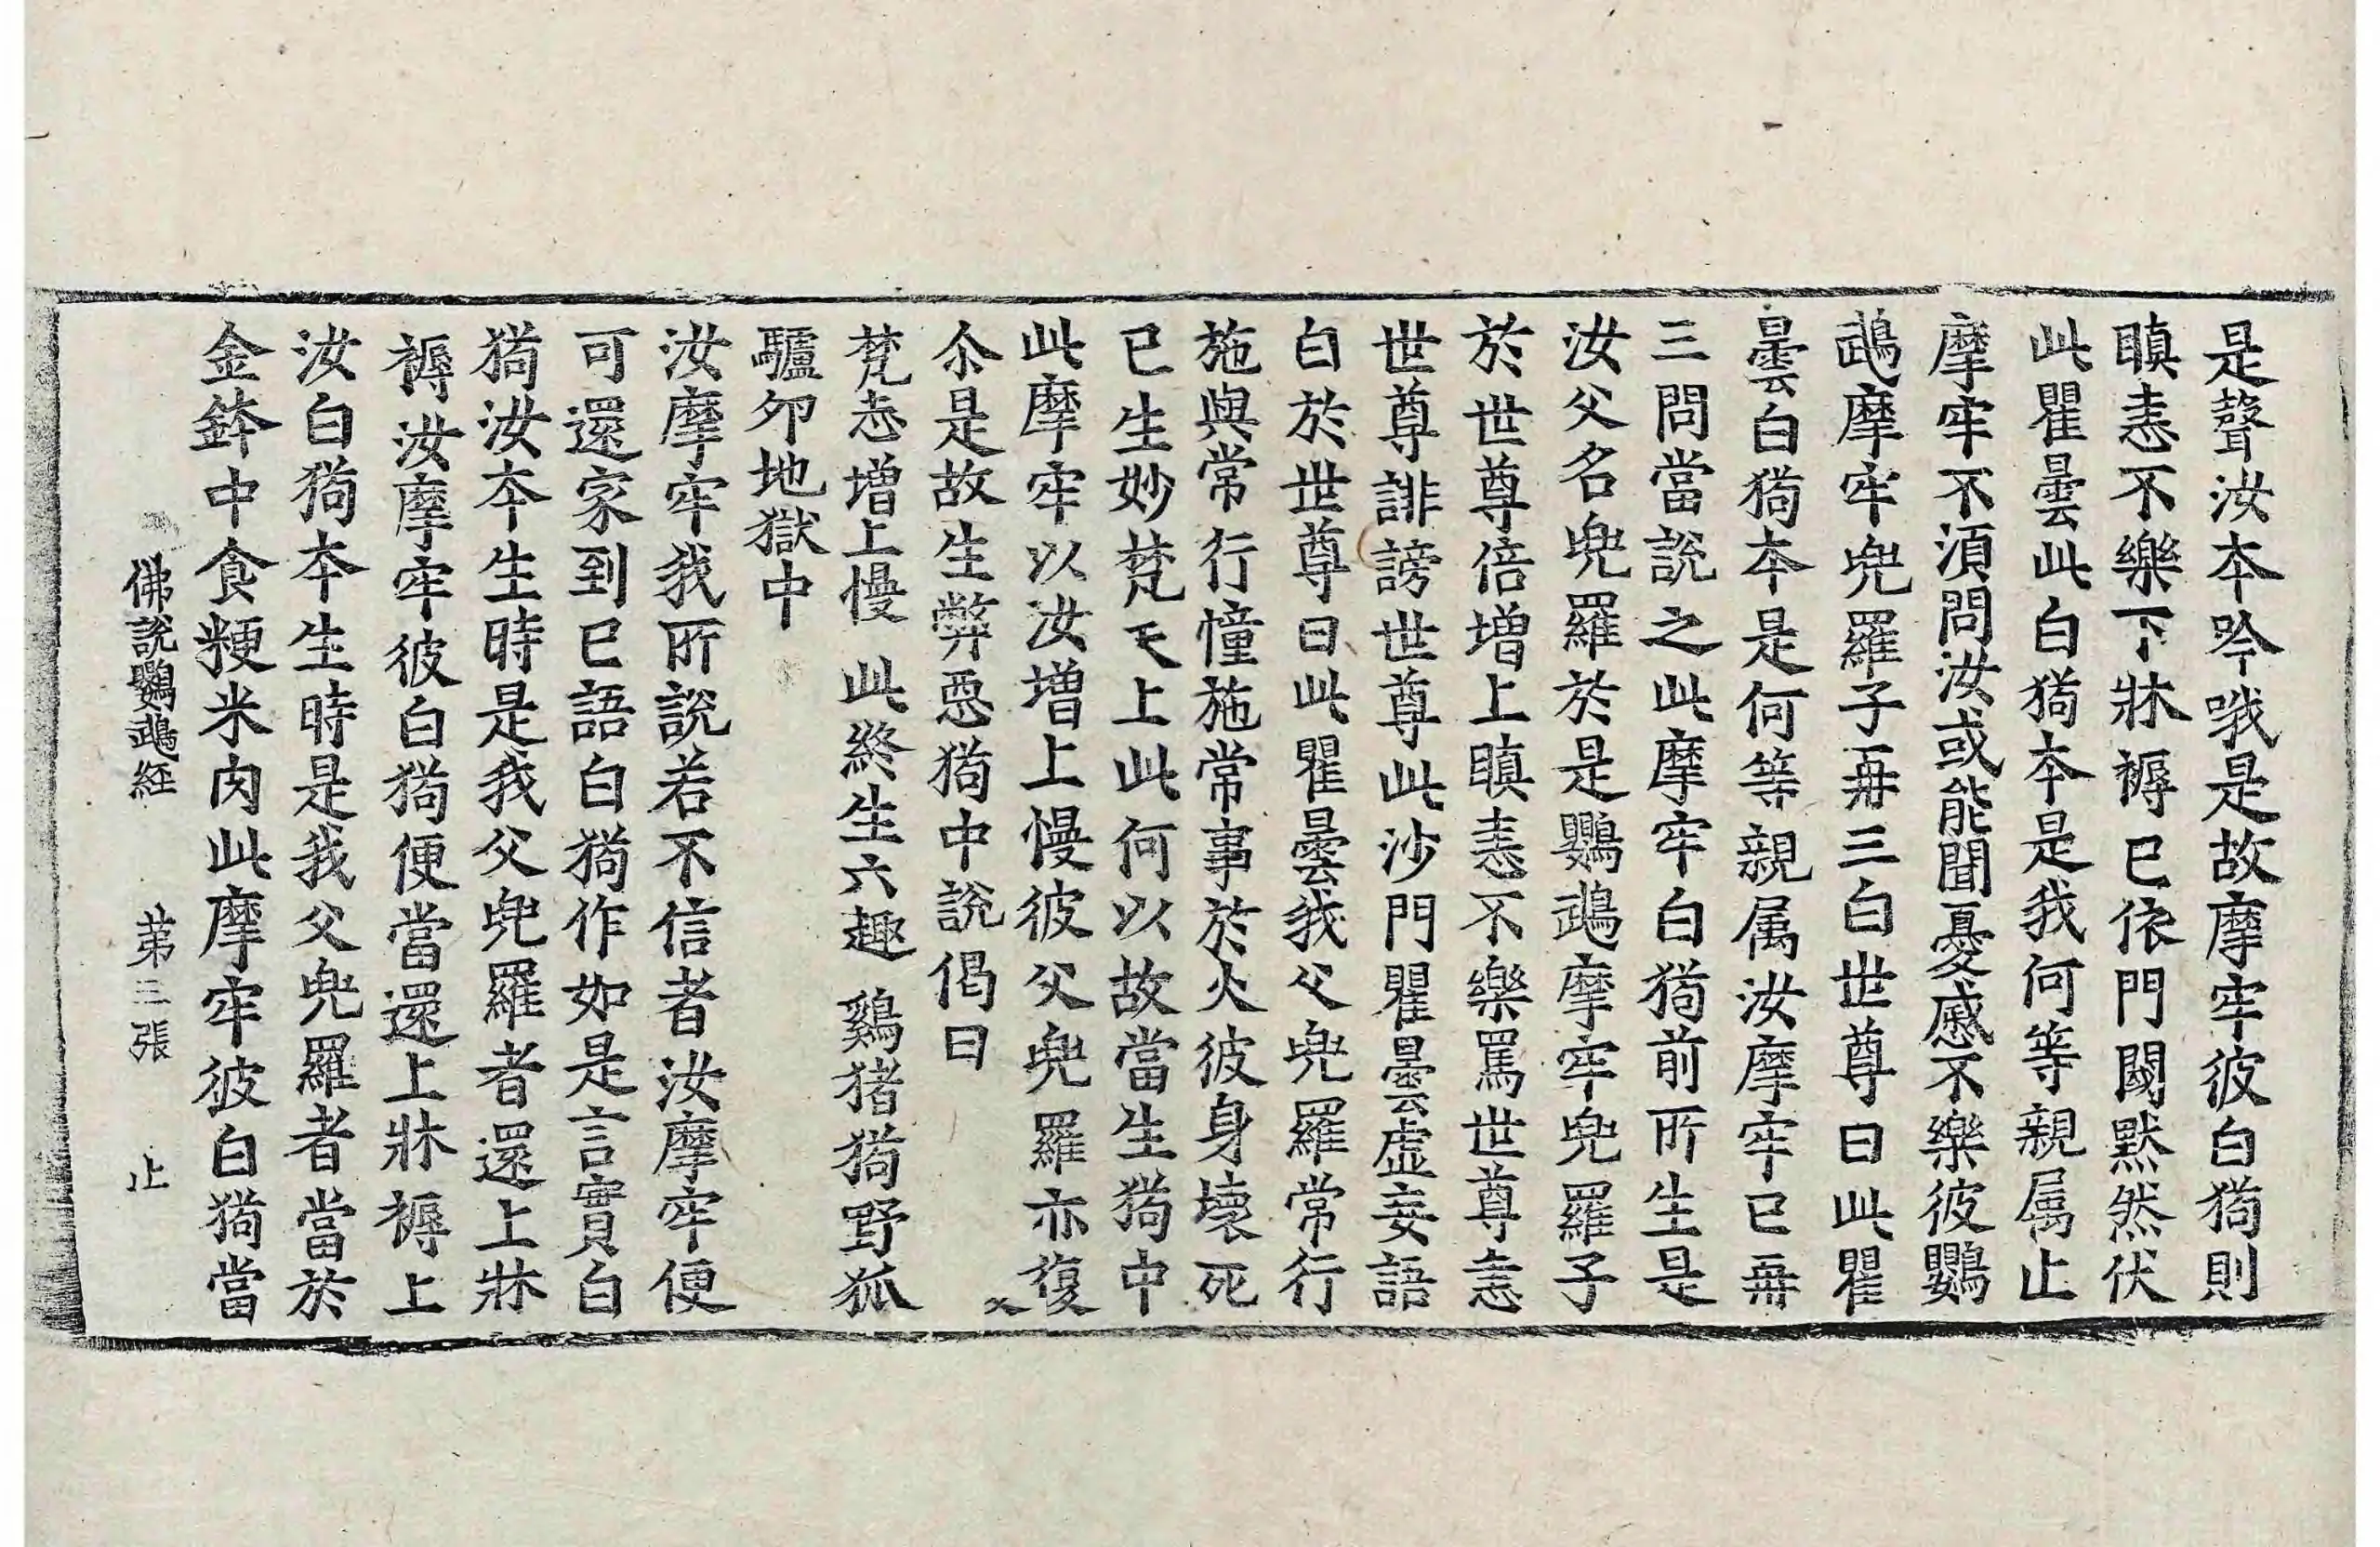 是聲汝本吟哦是故摩牢彼白狗則
瞋恚不樂下牀褥已依門閫默然伏
此瞿曇此白狗本是我何等親属止
摩牢不湏問汝或能聞憂慼不樂彼鸚
鵡摩牢兜羅子再三白世尊曰此瞿
曇白狗本是何等親属汝摩牢已再
三問當說之此摩牢白狗前所生是
汝父名兜羅於是鸚鵡摩牢兜羅子
於世尊倍增上瞋恚不樂罵世尊恚
世尊誹謗世尊此沙門瞿曇虛妄語
白於世尊曰此瞿曇我父兜羅常行
施與常行憧施常事於火彼身壞死
已生妙梵天上此何以故當生狗中
此摩牢以汝增上慢彼父兜羅亦復
尒是故生弊惡狗中說偈曰
梵志增上慢 此終生六趣 鷄猪狗野狐
驢卵地獄中
汝摩牢我所說若不信者汝摩牢便
可還家到已語白狗作如是言實白
狗汝本生時是我父兜羅者還上牀
褥汝摩牢彼白狗便當還上牀褥上
汝白狗本生時是我父兜羅者當於
金鉢中食粳米肉此摩牢彼白狗當
佛說鸚鵡経 第三張 止